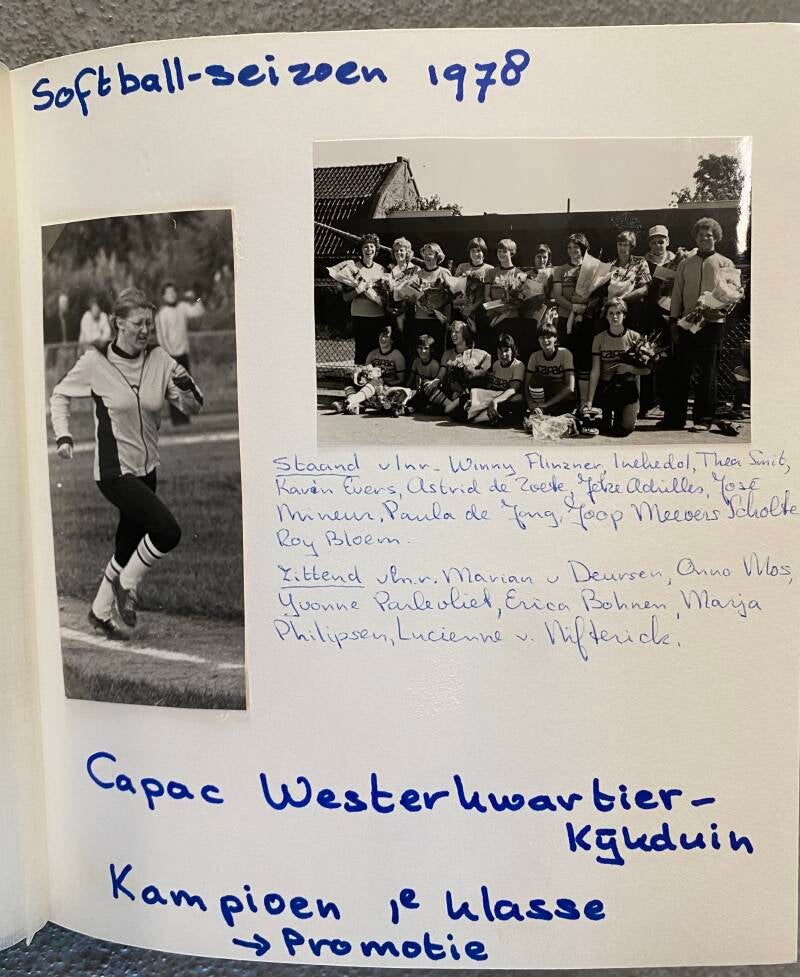 Softball-seizoen 1978
capac
Staand vlnr. Winny Flinzner, Thea Smit,
Karin Evers, Astrid de Zoete, Jetze Adrilles, José
Mineur, Paula de Jong, Joop Meevers Scholte
Roy Bloem.
Zittend vln.r. Marian v Deursen, Onno Mos,
Yvonne Parlevliet, Erica Bohnen, Marja
Philipsen, Lucienne v. Nifterick.
Capac Westerkwartier-
Kijkduin
Kampioen 1e klasse
→ Promotie